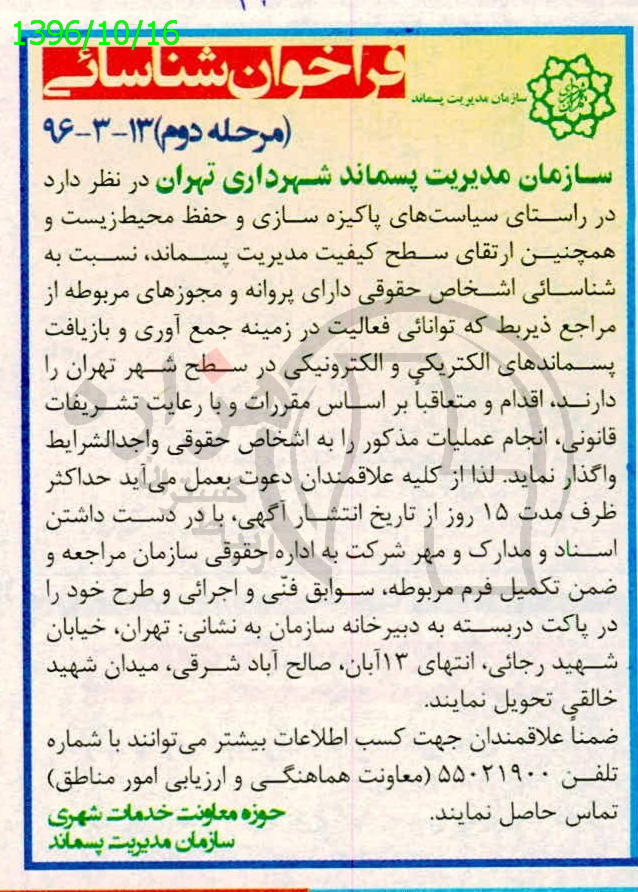 1396/10/16
فراخوان شناسائی
سازمان مدیریت پسماند
(مرحله دوم) ۱۳-۳-۹۶
سازمان مدیریت پسماند شهرداری تهران در نظر دارد
در راستای سیاست‌های پاکیزه سازی و حفظ محیط‌زیست و
همچنین ارتقای سطح کیفیت مدیریت پسماند، نسبت به
شناسائی اشخاص حقوقی دارای پروانه و مجوزهای مربوطه از
مراجع ذیربط که توانائی فعالیت در زمینه جمع آوری و بازیافت
پسماندهای الکتریکی و الکترونیکی در سطح شهر تهران را
دارند، اقدام و متعاقباً بر اساس مقررات و با رعایت تشریفات
قانونی، انجام عملیات مذکور را به اشخاص حقوقی واجدالشرایط
واگذار نماید. لذا از کلیه علاقمندان دعوت بعمل می‌آید حداکثر
ظرف مدت ۱۵ روز از تاریخ انتشار آگهی، با در دست داشتن
اسناد و مدارک و مهر شرکت به اداره حقوقی سازمان مراجعه و
ضمن تکمیل فرم مربوطه، سوابق فنّی و اجرائی و طرح خود را
در پاکت دربسته به دبیرخانه سازمان به نشانی: تهران، خیابان
شهید رجائی، انتهای ۱۳آبان، صالح آباد شرقی، میدان شهید
خالقی تحویل نمایند.
ضمناً علاقمندان جهت کسب اطلاعات بیشتر می‌توانند با شماره
تلفن ۵۵۰۲۱۹۰۰ (معاونت هماهنگی و ارزیابی امور مناطق)
تماس حاصل نمایند.
حوزه معاونت خدمات شهری
سازمان مدیریت پسماند